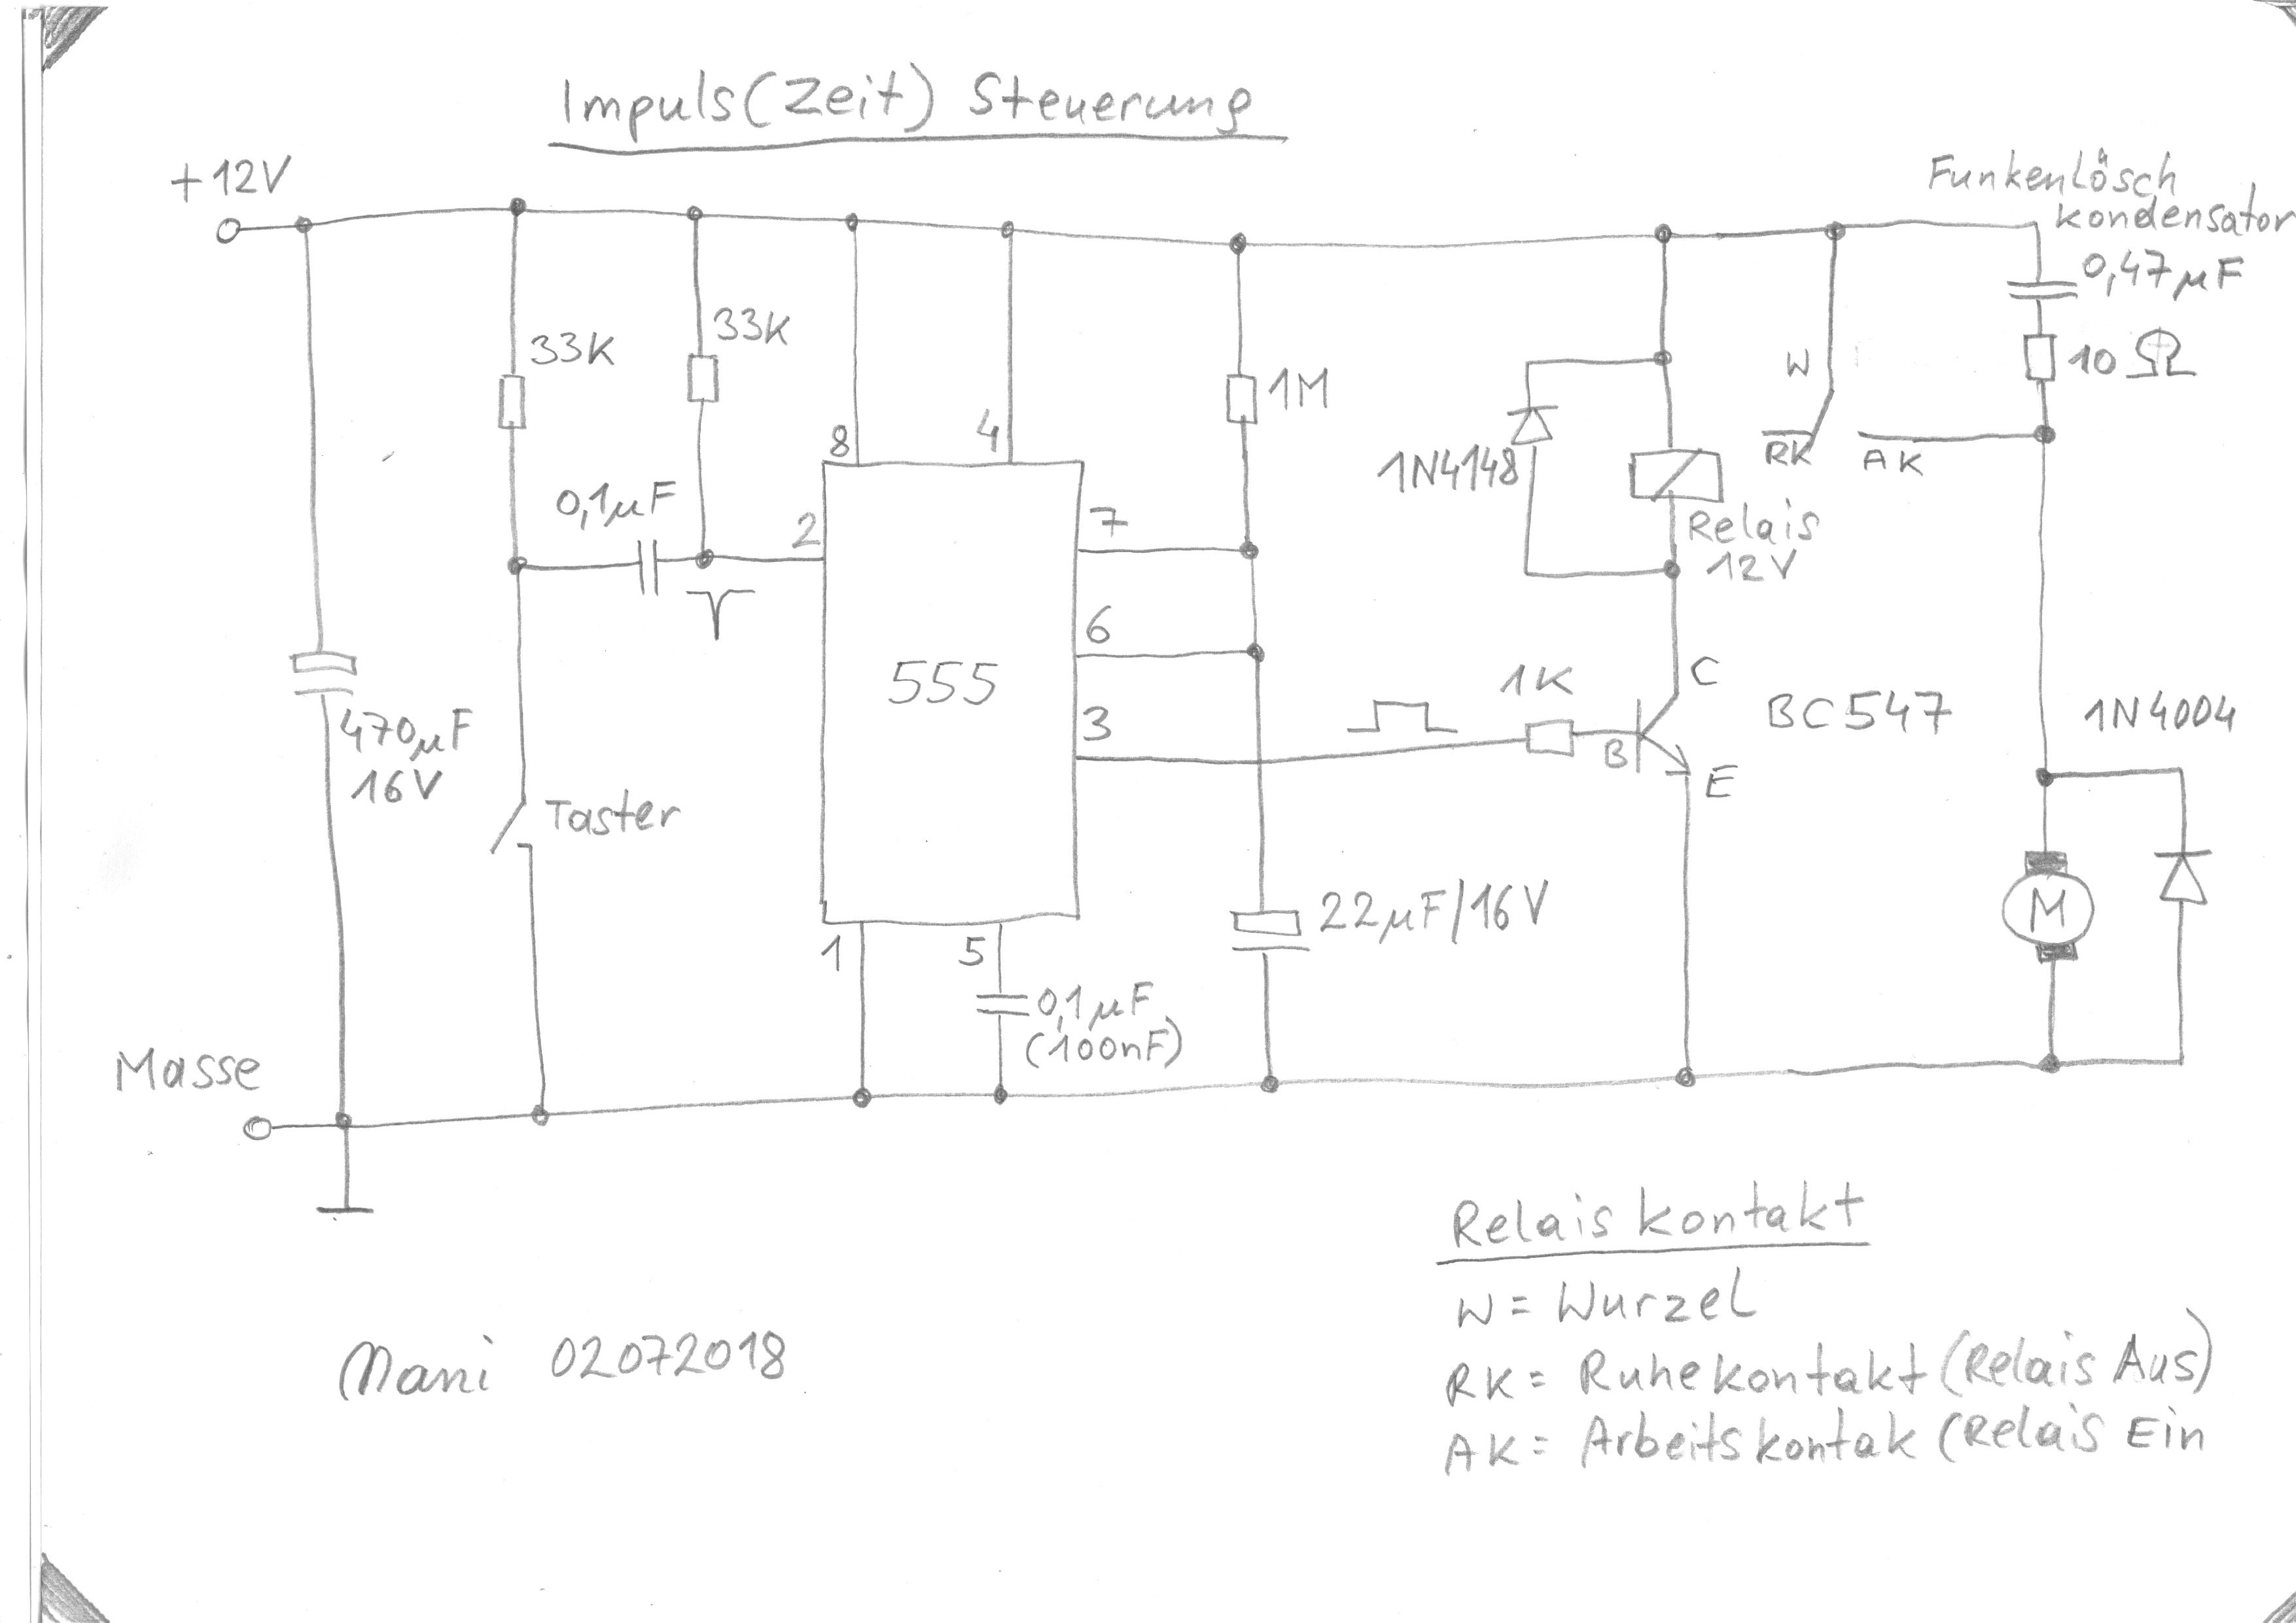 Impuls(Zeit) Steuerung
+12V
Funkenlösch
kondensator
0,47µF
10 Ω
33K
33K
1M
W
RK
AK
8
4
1N4148
0,1µF
2
7
Relais
12V
6
555
3
1K
C
B
E
BC547
1N4004
470µF
16V
Taster
M
22µF/16V
1
5
0,1µF
(100nF)
Masse
Relaiskontakt
W = Wurzel
RK = Ruhekontakt (Relais Aus)
AK = Arbeitskontak (Relais Ein
Mani 02072018